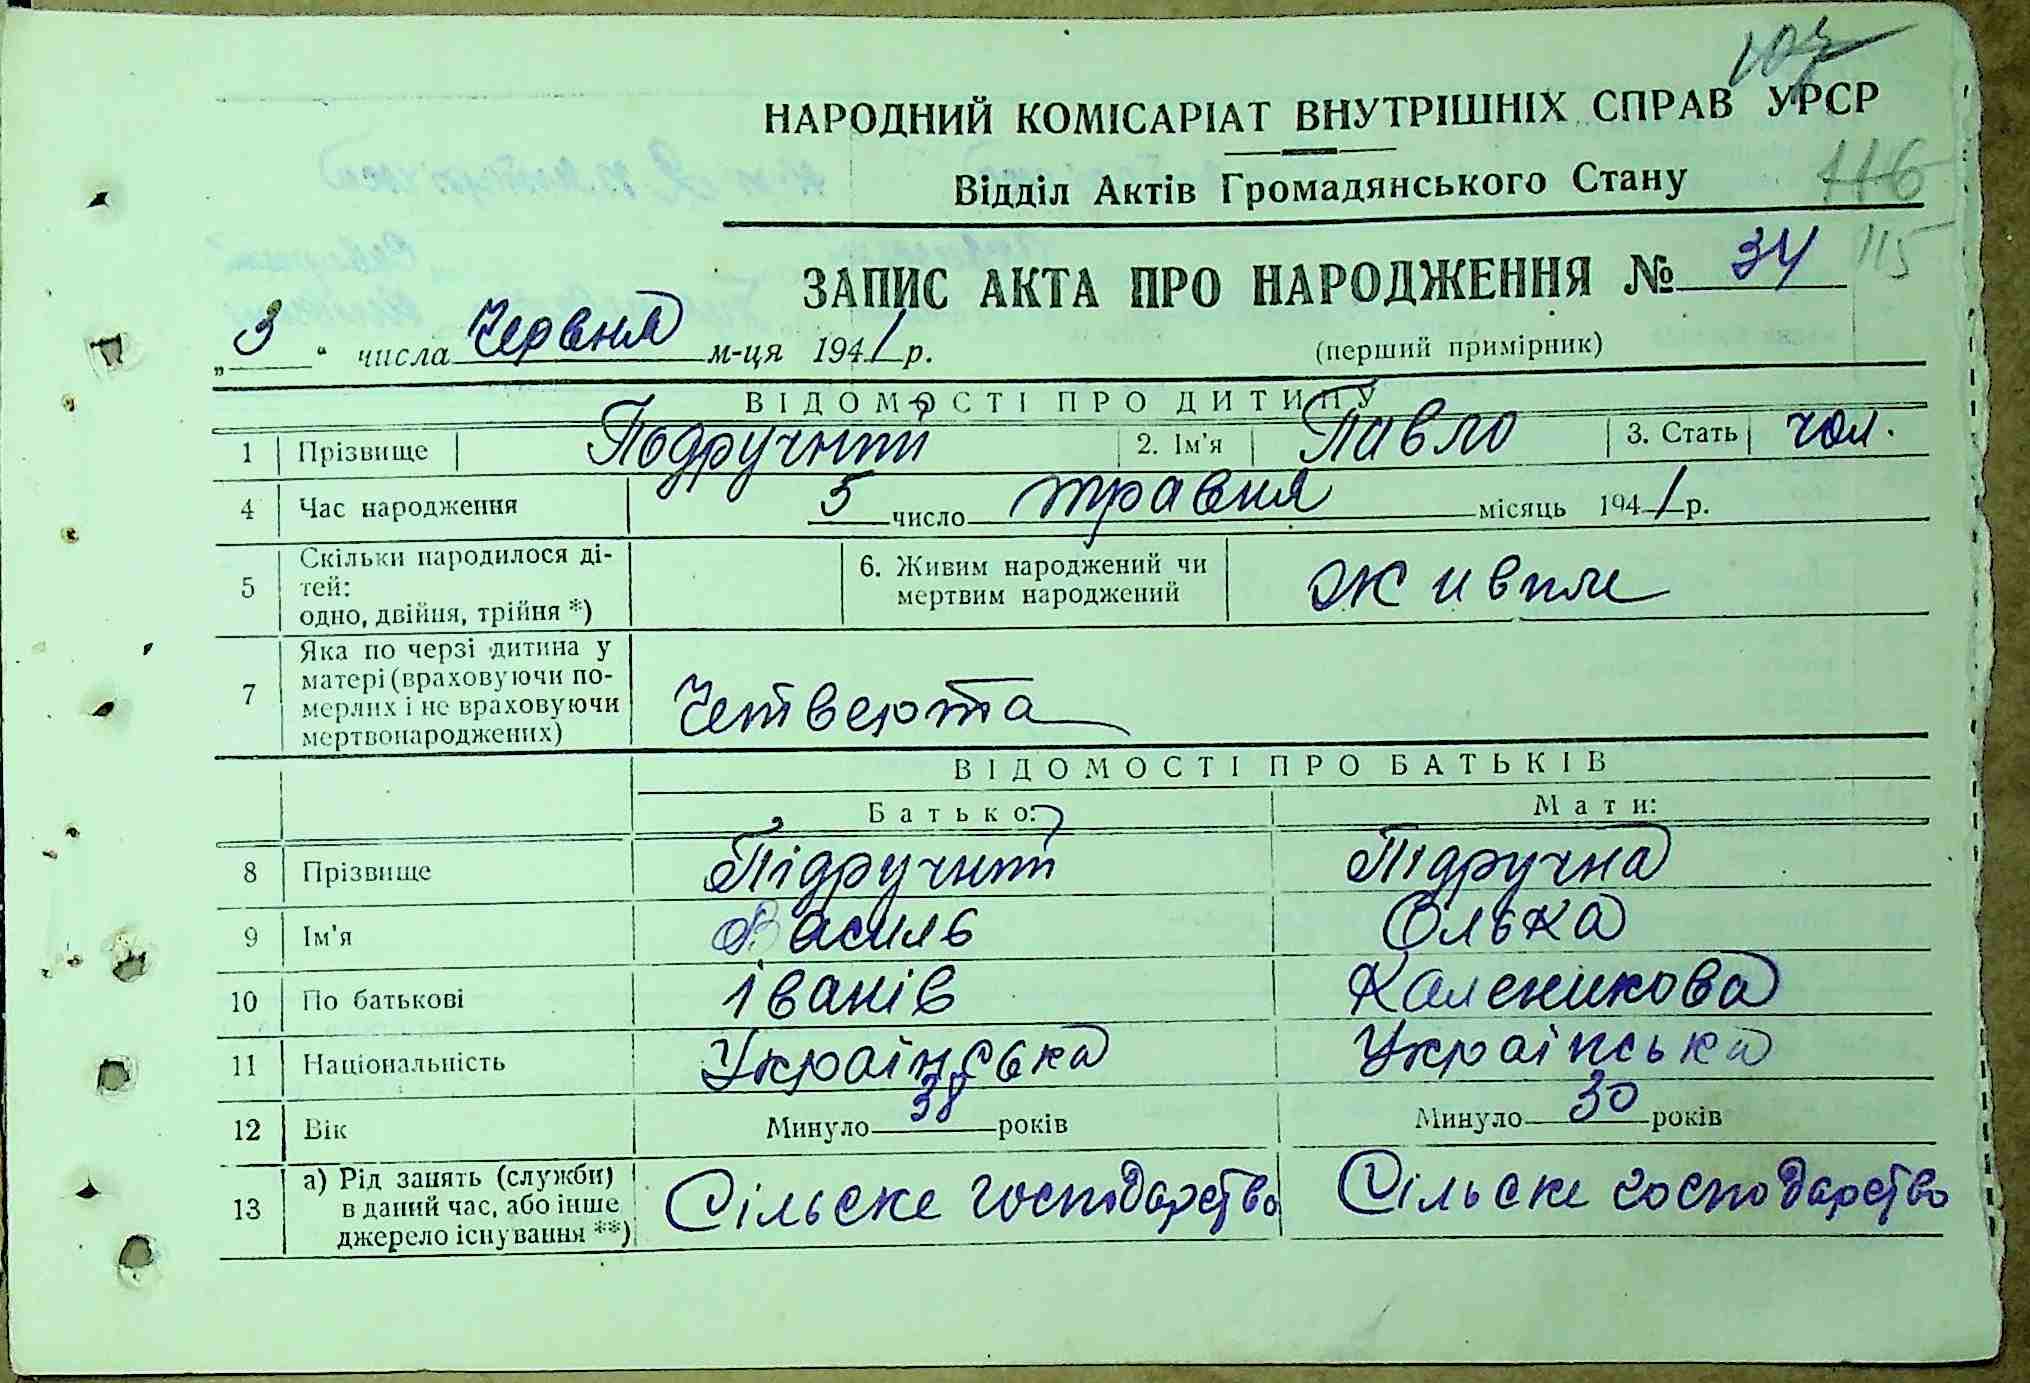 НАРОДНИЙ КОМІСАРІАТ ВНУТРІШНІХ СПРАВ УРСР
Відділ Актів Громадянського Стану
116
115
ЗАПИС АКТА ПРО НАРОДЖЕННЯ № 34
„ 3 “ числа Червня м-ця 1941 р. (перший примірник)
ВІДОМОСТІ ПРО ДИТИНУ
1 Прізвище Подручний 2. Ім'я Павло 3. Стать чол.
4 Час народження 5 число травня місяць 1941 р.
5 Скільки народилося ді-
тей:
одно, двійня, трійня *)
6. Живим народжений чи
мертвим народжений Живим
7 Яка по черзі дитина у
матері (враховуючи по-
мерлих і не враховуючи
мертвонароджених) Четверта
ВІДОМОСТІ ПРО БАТЬКІВ
Батько: Мати:
8 Прізвище Підручний Підручна
9 Ім'я Василь Олька
10 По батькові Іванів Каленикова
11 Національність Українська Українська
12 Вік Минуло 38 років Минуло 30 років
13 а) Рід занять (служби)
в даний час, або інше
джерело існування **) Сільске господарство Сільске господарство